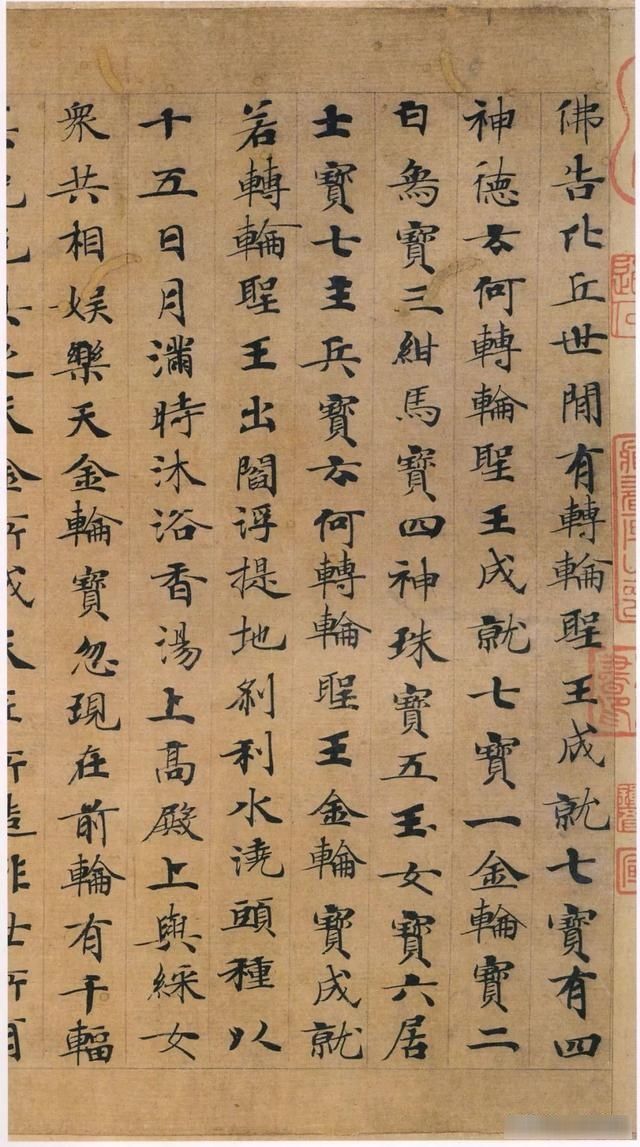 佛告比丘世間有轉輪聖王成就七寶有四
神德云何轉輪聖王成就七寶一金輪寶二
白象寶三紺馬寶四神珠寶五玉女寶六居
士寶七主兵寶云何轉輪聖王金輪寶成就
若轉輪聖王出閻浮提地剎利水澆頭種以
十五日月滿時沐浴香湯上高殿上與綵女
衆共相娛樂天金輪寶忽現在前輪有千輻
光色具足天金所成天匠所造非世所有